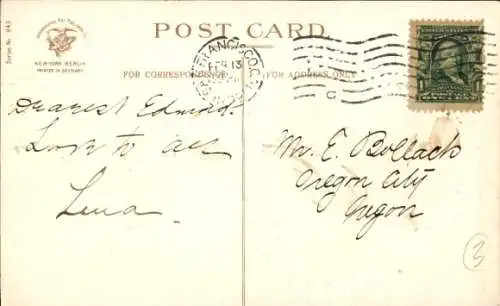 POST CARD.
Series No. 643
NEW-YORK BERLIN
PRINTED IN GERMANY
FOR CORRESPONDENCE
FOR ADDRESS ONLY
SAN FRANCISCO, CAL.
FEB 13
Dearest Edmond.
Love to all
Lena
Mr. E. Bollack
Oregon City
Oregon
3